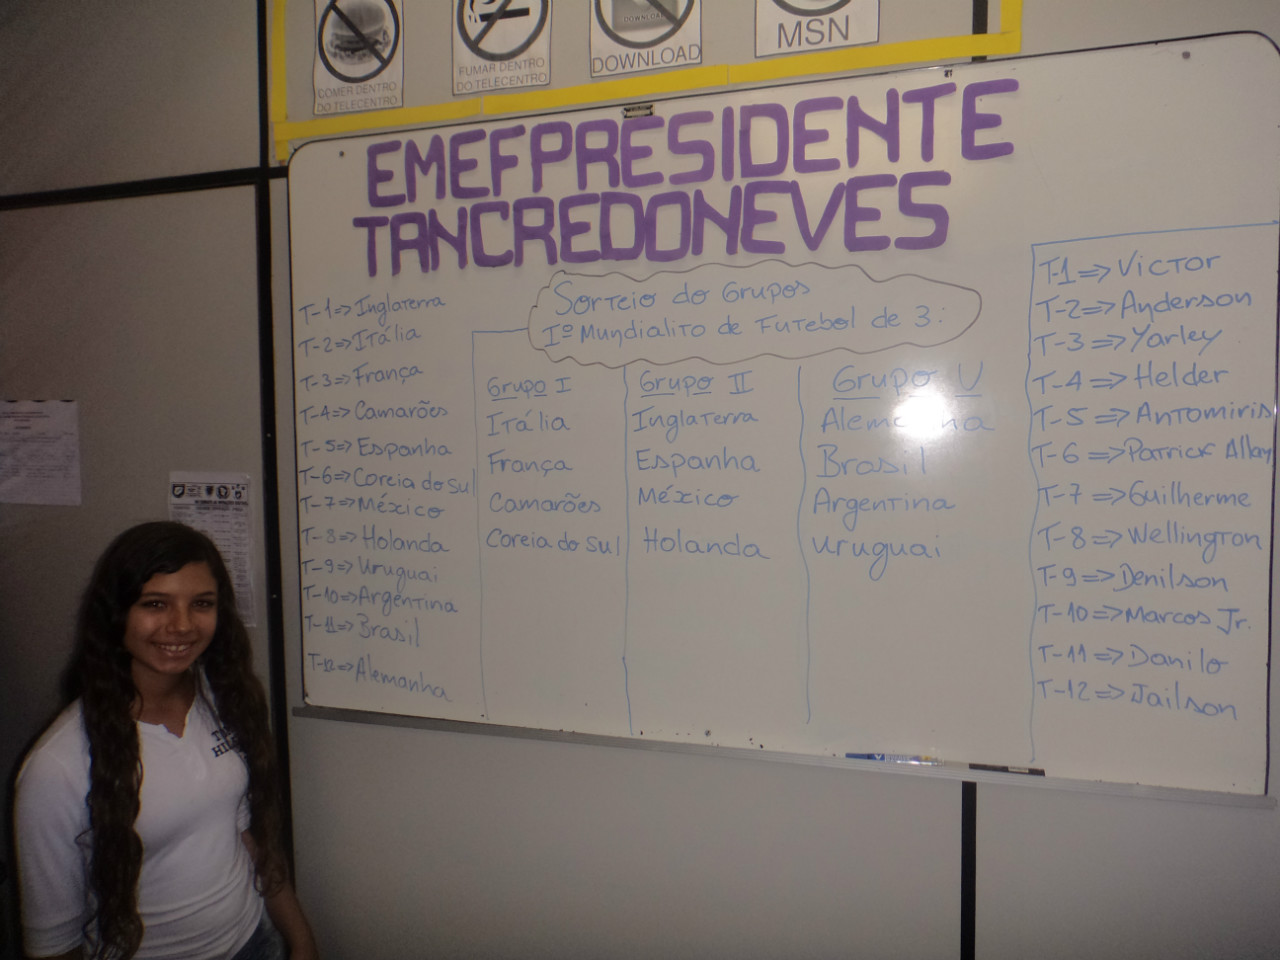 COMER DENTRO
DO TELECENTRO
FUMAR DENTRO
DO TELECENTRO
DOWNLOAD
DOWNLOAD
MSN
EMEFPRESIDENTE
TANCREDONEVES
Sorteio do Grupos
Iº Mundialito de Futebol de 3:
T-1=>Inglaterra
T-2=>Itália
T-3=>França
T-4=>Camarões
T-5=>Espanha
T-6=>Coreia do Sul
T-7=>México
T-8=>Holanda
T-9=>Uruguai
T-10=>Argentina
T-11=>Brasil
T-12=>Alemanha
Grupo I
Itália
França
Camarões
Coreia do Sul
Grupo II
Inglaterra
Espanha
México
Holanda
Grupo V
Alemanha
Brasil
Argentina
Uruguai
T-1=>Victor
T-2=>Anderson
T-3=>Yarley
T-4=>Helder
T-5=>Antomiris
T-6=>Patrick Allan
T-7=>Guilherme
T-8=>Wellington
T-9=>Denilson
T-10=>Marcos Jr.
T-11=>Danilo
T-12=>Jailson